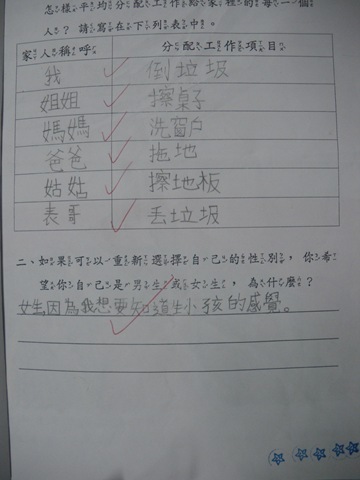 怎樣平均分配工作給家裡的每一個
人？請寫在下列表中。
家人稱呼 分配工作項目
我 倒垃圾
姐姐 擦桌子
媽媽 洗窗白
爸爸 拖地
姑姑 擦地板
表哥 丢垃圾
二、如果可以重新選擇自己的性別，你希
望你自己是男生或女生，為什麼？
女生因為我想要知道生小孩的感覺。